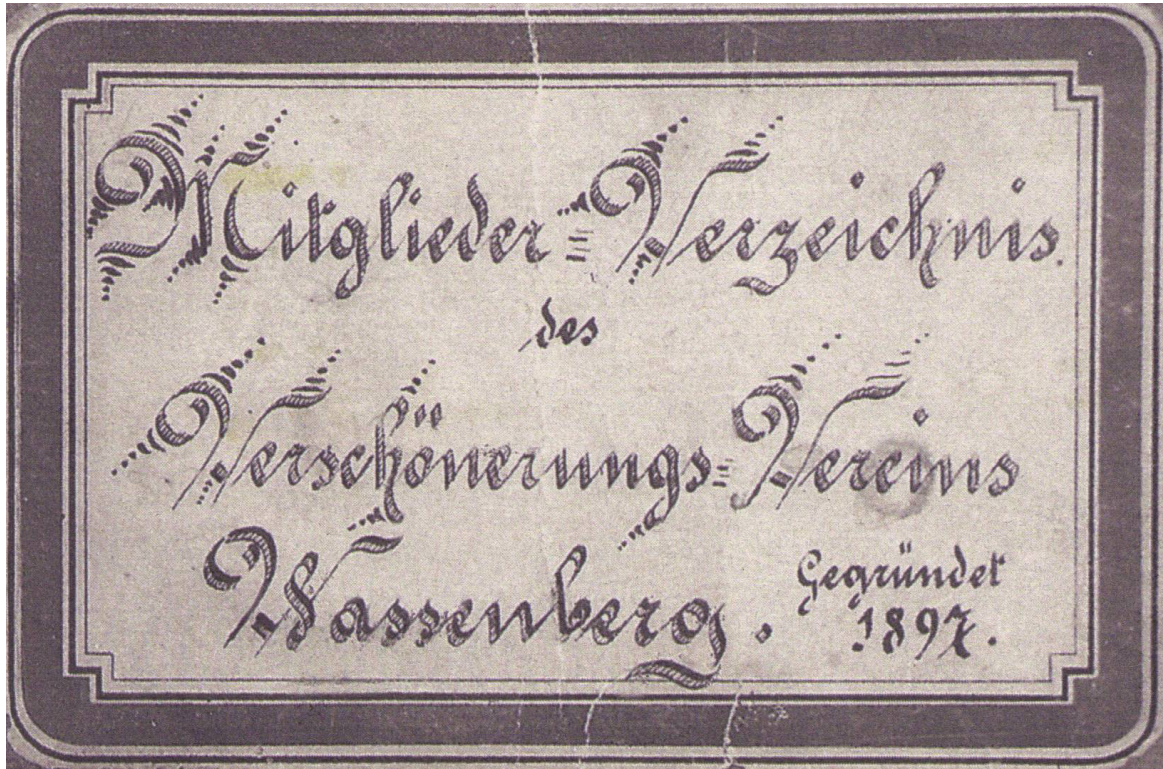 Mitglieder=Verzeichnis.
des
Verschönerungs=Vereins
Wassenberg.
Gegründet
1897.